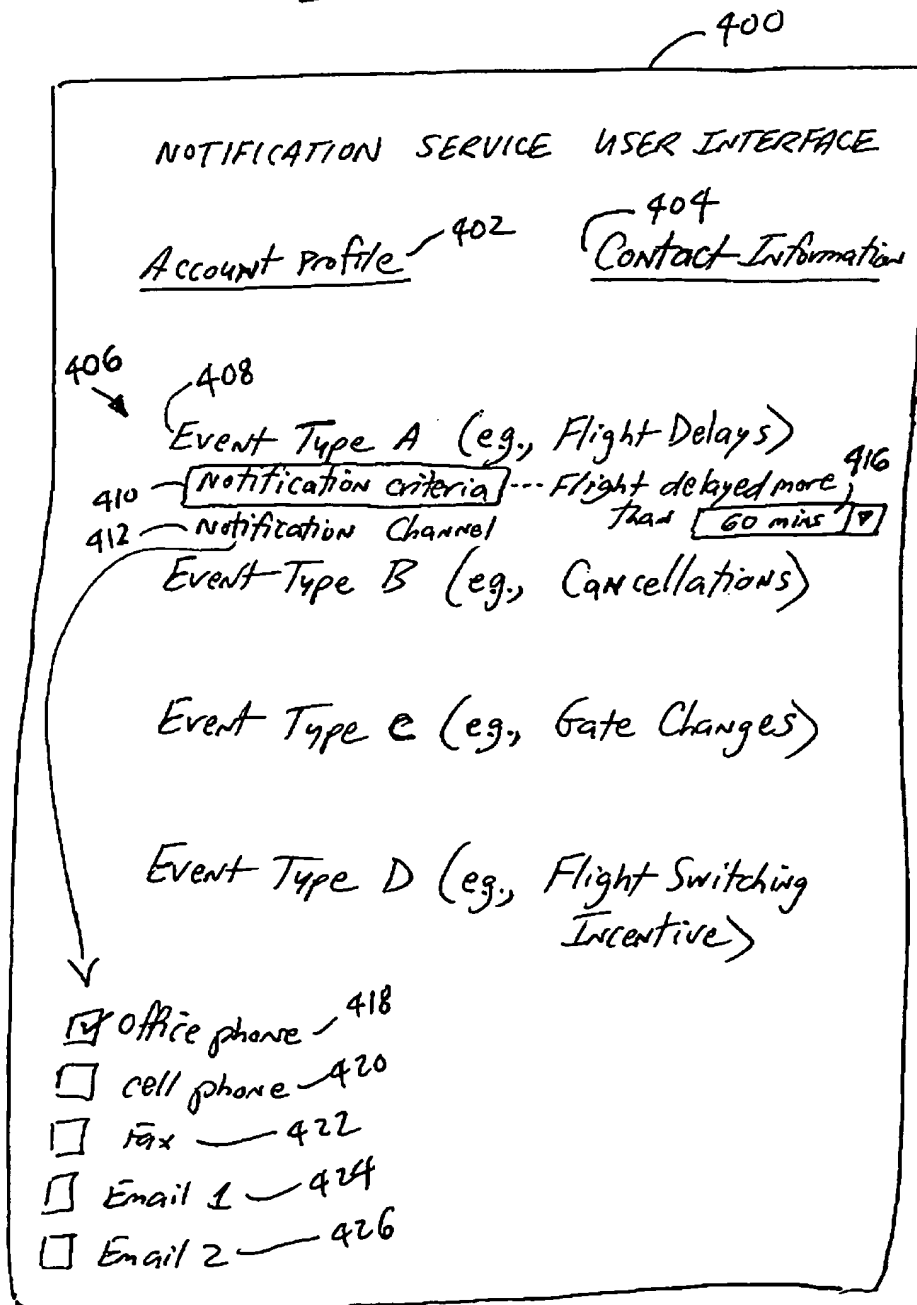 400
NOTIFICATION SERVICE USER INTERFACE
402
404
Account Profile
Contact Information
406
408
Event Type A (eg., Flight Delays)
410 Notification criteria --- Flight delayed more 416
412 Notification Channel than 60 mins
Event Type B (eg., Cancellations)
Event Type C (eg., Gate Changes)
Event Type D (eg., Flight Switching
Incentive)
Office phone 418
cell phone 420
Fax 422
Email 1 424
Email 2 426